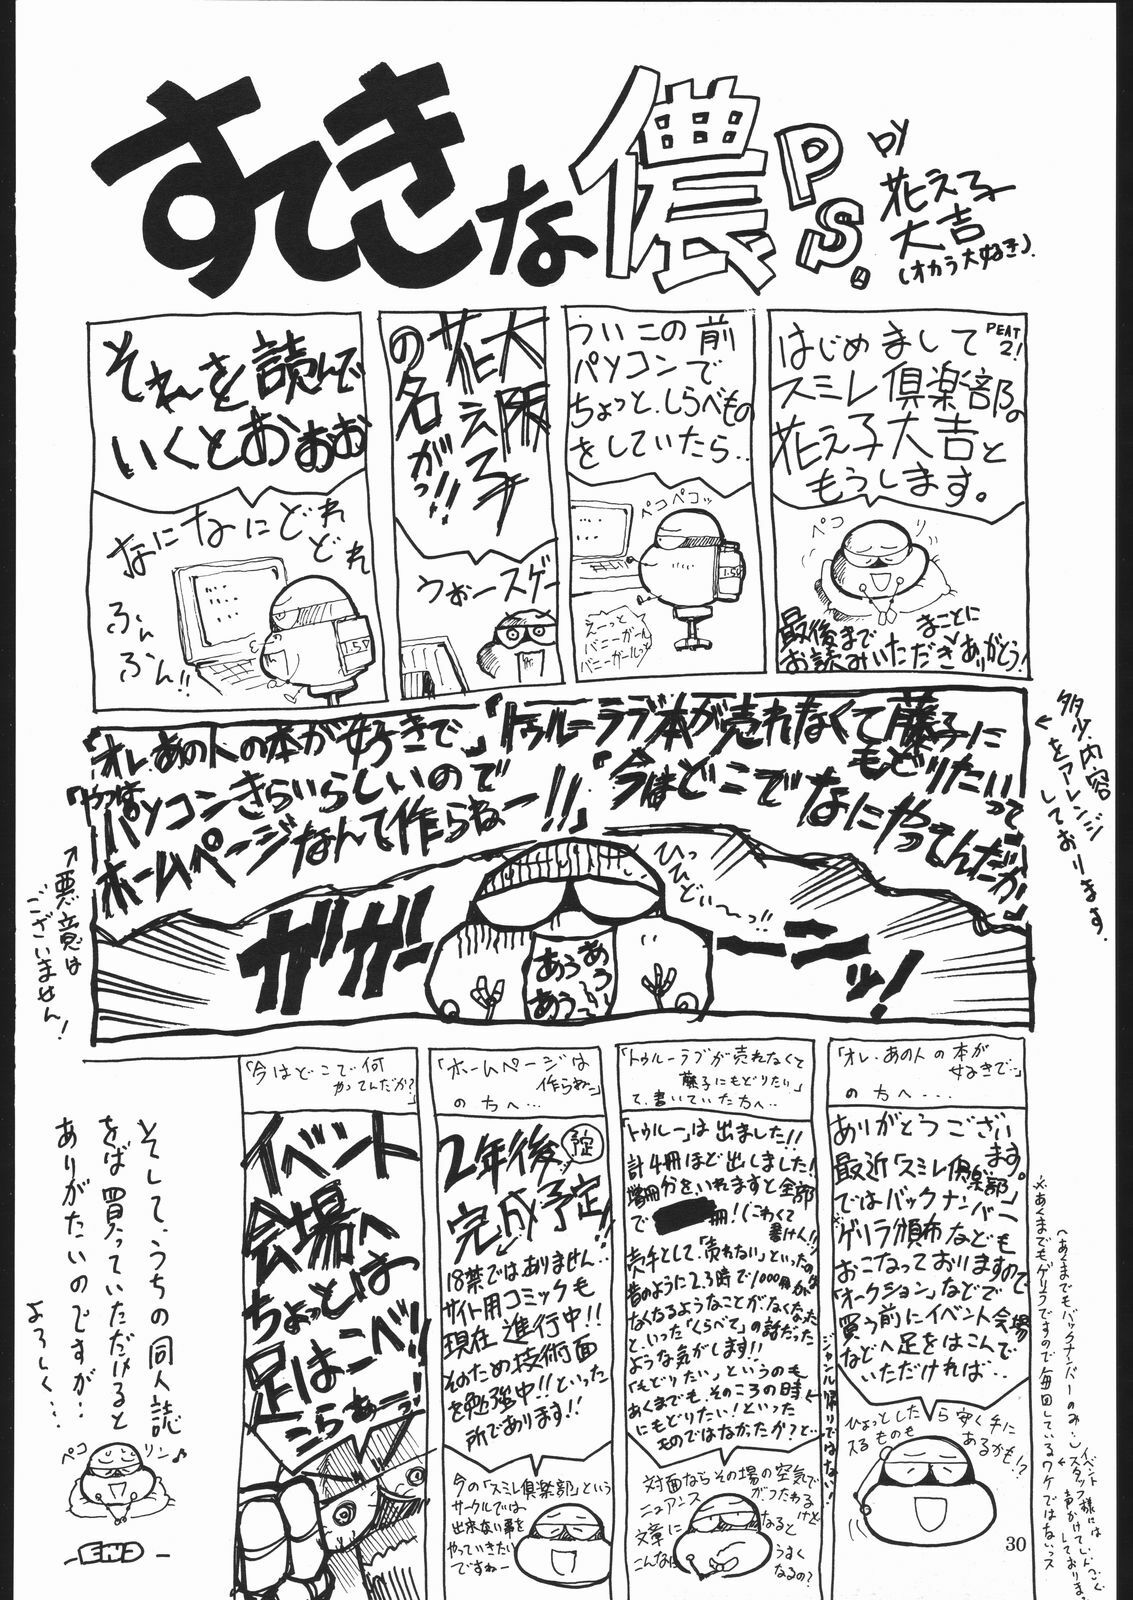 すてきな儂 P.S.
by
花え子
大吉
(オカラ大好き).
PEAT 2!
はじめまして
スミレ倶楽部の
花え子大吉と
もうします。
ペコリ
最後まで
お読みいただき
まことに
ありがとう!
ういこの前
パソコンで
ちょっと、しらべもの
をしていたら..
ペコペコッ
えーっと
バニーガール
バニーガールっと
1.5V
大阪
花え子
の名がっ!!
うぉースゲー
それを読んで
いくとおぉぉ
なになにどれ
どれ
ふん
ふん!!
1.5V
「トゥルーラブ本が売れなくて藤子に
もどりたいって
「今はどこでなにやってんだか」
「オレあの人の本が好きで」
「やっぱ
パソコンきらいらしいので
ホームページなんて作らねー!!」
ひっ
ひどぃ〜っ!!
ガガーーーンッ!
あうあう
あうあう〜
←多少、内容
をアレンジ
しております.
↑悪意は
ございません!
「オレ、あの人の本が
好きで…」
の方へ...
ありがとうござい
ます。
最近「スミレ倶楽部」
ではバックナンバー
※ゲリラ頒布なども
おこなっておりますので
「オークション」などで
買う前にイベント会場
などへ足をはこんで
いただければ..
ひょっとしたら安く手に
入るものも
あるかも!?
※あくまでもゲリラですので毎回しているワケではないっス
(あくまでもバックナンバーのみ…)
「トゥルーラブが売れなくて
藤子にもどりたい」
て、書いていた方へ…
「トゥルー」は出ました!!
計4冊ほど出しました!
増冊分をいれますと全部
で
冊!(こわくて
書けん!!)
売手として、「売れない」といったのは
昔のように2.3時で1000冊が
なくなるようなことがなくなった
といった「くらべて」の話だった
ような気がします!!
「もどりたい」というのも
あくまでも、そのころの時←
にもどりたい!といった
ものではなかったか?と…
ジャンル帰りではない!
対面ならその場の空気で
ニュアンス
がつたわる
けど
文章に
なると
こんなに
うまく
なるの?
「ホームページは
作らねー」
の方へ…
2年後 予定
完成予定!!
18禁ではありません…
サイト用コミックも
現在進行中!!
そのため技術面
を勉強中!!といった
所であります!!
今の「スミレ倶楽部」という
サークルでは
出来ない事を
やっていきたい
ですねー
「今はどこで何
やってんだか?」
イベント
会場へ
ちょっとは
足はこべ!!
こらぁー!!
そして、うちの同人誌
をば買っていただけると
ありがたいのですが…
よろしく…
ペコリン♪
-END-
30